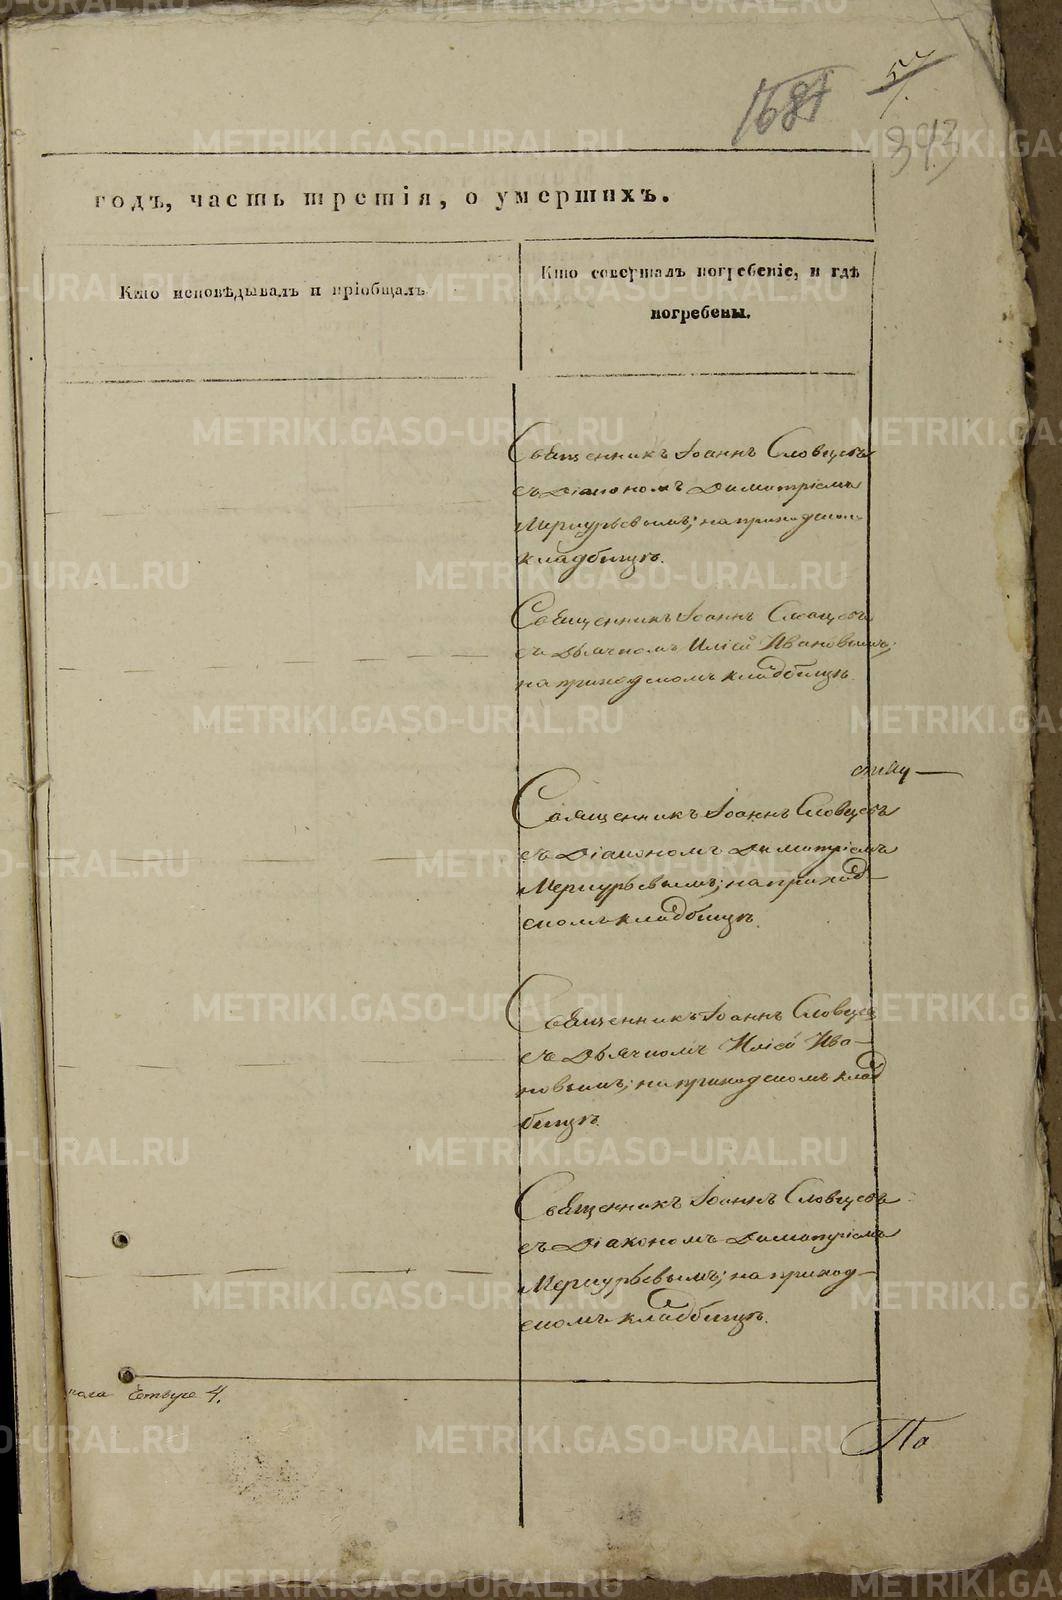 1687
343
годъ, часть третія, о умершихъ.
Кто исповѣдывалъ и пріобщалъ
Кто совершалъ погребеніе, и гдѣ
погребены.
Священникъ Іоаннъ Словцевъ
съ Діакономъ Димитріемъ
Меркурьевымъ; на приходском
кладбищѣ.
Священникъ Іоаннъ Словцевъ
съ Дьячкомъ Иліей Ивановымъ;
на приходскомъ кладбищѣ.
Священникъ Іоаннъ Словцевъ
съ Діакономъ Димитріемъ
Меркурьевымъ; на приход-
скомъ кладбищѣ.
Священникъ Іоаннъ Словцевъ
съ Дьячкомъ Иліей Ива-
новымъ; на приходскомъ клад
бищѣ.
Священникъ Іоаннъ Словцевъ
съ Діакономъ Димитріемъ
Меркурьевымъ; на приход-
скомъ кладбищѣ.
пола 4.
По
METRIKI.GASO-URAL.RU